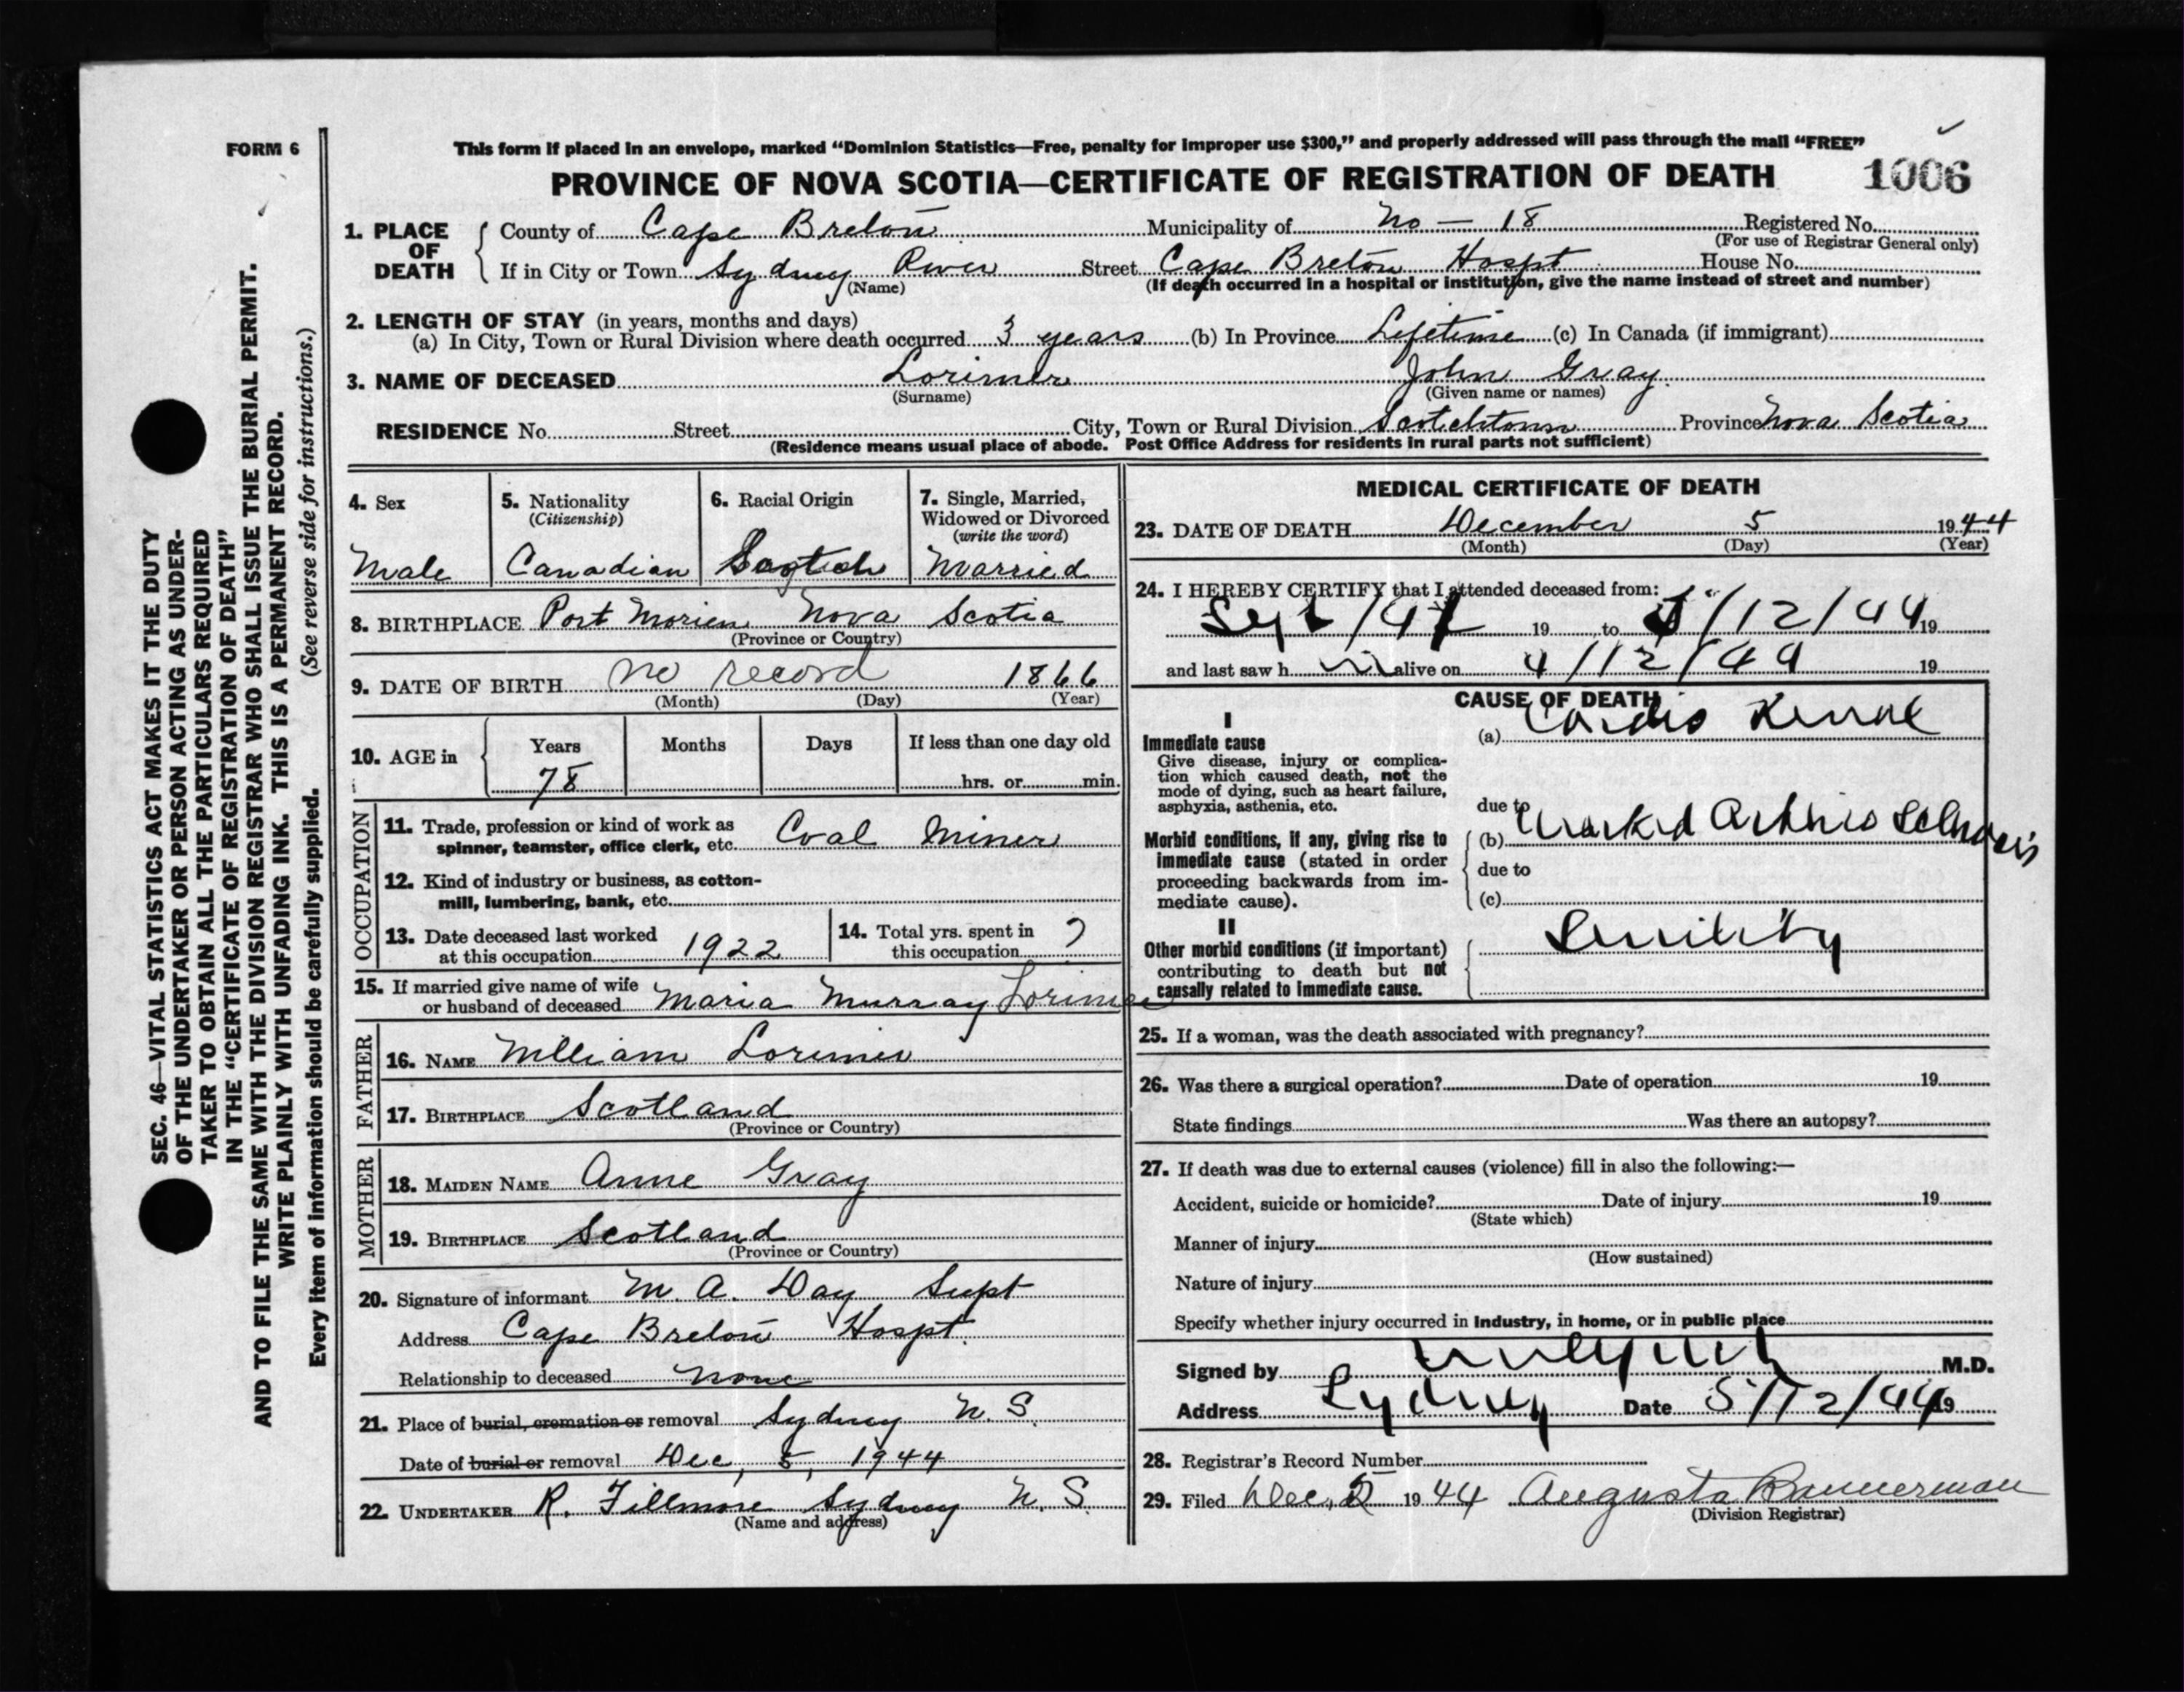 FORM 6
This form if placed in an envelope, marked “Dominion Statistics—Free, penalty for improper use $300,” and properly addressed will pass through the mail “FREE”
PROVINCE OF NOVA SCOTIA—CERTIFICATE OF REGISTRATION OF DEATH 1006
1. PLACE OF DEATH
County of Cape Breton Municipality of No — 18 Registered No.
(For use of Registrar General only)
If in City or Town Sydney River Street Cape Breton Hospt House No.
(Name) (If death occurred in a hospital or institution, give the name instead of street and number)
2. LENGTH OF STAY (in years, months and days)
(a) In City, Town or Rural Division where death occurred 3 years (b) In Province Lifetime (c) In Canada (if immigrant)
3. NAME OF DECEASED Lorimer John Gray
(Surname) (Given name or names)
RESIDENCE No. Street City, Town or Rural Division Scotchtown Province Nova Scotia
(Residence means usual place of abode. Post Office Address for residents in rural parts not sufficient)
4. Sex
Male
5. Nationality
(Citizenship)
Canadian
6. Racial Origin
Scotch
7. Single, Married,
Widowed or Divorced
(write the word)
Married
8. BIRTHPLACE Port Morien Nova Scotia
(Province or Country)
9. DATE OF BIRTH no record 1866
(Month) (Day) (Year)
10. AGE in
Years Months Days If less than one day old
78 hrs. or min.
OCCUPATION
11. Trade, profession or kind of work as
spinner, teamster, office clerk, etc. Coal Miner
12. Kind of industry or business, as cotton-
mill, lumbering, bank, etc.
13. Date deceased last worked
at this occupation 1922
14. Total yrs. spent in
this occupation ?
15. If married give name of wife
or husband of deceased Maria Murray Lorimer
FATHER
16. NAME William Lorimer
17. BIRTHPLACE Scotland
(Province or Country)
MOTHER
18. MAIDEN NAME Anne Gray
19. BIRTHPLACE Scotland
(Province or Country)
20. Signature of informant M. A. Day Supt
Address Cape Breton Hospt.
Relationship to deceased none
21. Place of burial, cremation or removal Sydney N. S.
Date of burial or removal Dec, 5, 1944
22. UNDERTAKER R. Fillmore Sydney N. S.
(Name and address)
MEDICAL CERTIFICATE OF DEATH
23. DATE OF DEATH December 5 1944
(Month) (Day) (Year)
24. I HEREBY CERTIFY that I attended deceased from:
Sept /41 19 to 5/12/44 19
and last saw h im alive on 4/12/44 19
CAUSE OF DEATH
I
Immediate cause
Give disease, injury or complica-
tion which caused death, not the
mode of dying, such as heart failure,
asphyxia, asthenia, etc.
(a) Cardio Renal
due to
Morbid conditions, if any, giving rise to
immediate cause (stated in order
proceeding backwards from im-
mediate cause).
(b) Marked Arterio Sclerosis
due to
(c)
II
Other morbid conditions (if important)
contributing to death but not
causally related to immediate cause.
Senility
25. If a woman, was the death associated with pregnancy?
26. Was there a surgical operation? Date of operation 19
State findings Was there an autopsy?
27. If death was due to external causes (violence) fill in also the following:—
Accident, suicide or homicide? Date of injury 19
(State which)
Manner of injury
(How sustained)
Nature of injury
Specify whether injury occurred in industry, in home, or in public place
Signed by M.D.
Address Sydney Date 5/12/44 19
28. Registrar's Record Number
29. Filed Dec. 5 1944 Augusta Bannerman
(Division Registrar)
SEC. 46—VITAL STATISTICS ACT MAKES IT THE DUTY
OF THE UNDERTAKER OR PERSON ACTING AS UNDER-
TAKER TO OBTAIN ALL THE PARTICULARS REQUIRED
IN THE “CERTIFICATE OF REGISTRATION OF DEATH”
AND TO FILE THE SAME WITH THE DIVISION REGISTRAR WHO SHALL ISSUE THE BURIAL PERMIT.
WRITE PLAINLY WITH UNFADING INK. THIS IS A PERMANENT RECORD.
Every item of information should be carefully supplied. (See reverse side for instructions.)